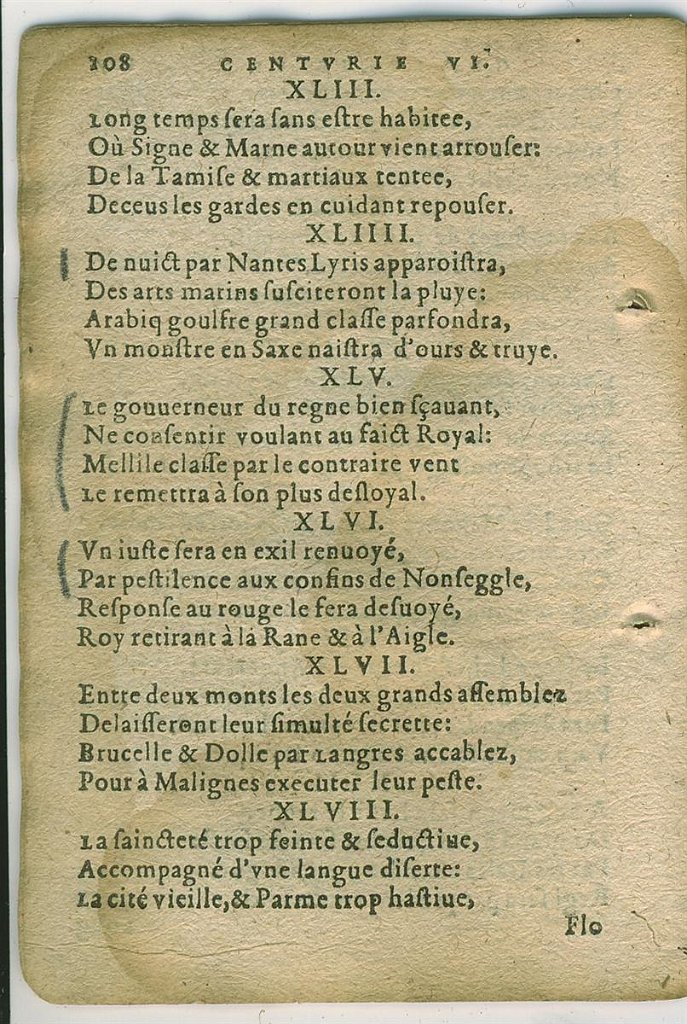 108 CENTVRIE VI.
XLIII.
Long temps ſera ſans eſtre habitee,
Où Signe & Marne autour vient arrouſer:
De la Tamiſe & martiaux tentee,
Deceus les gardes en cuidant repouſer.
XLIIII.
De nuict par Nantes Lyris apparoiſtra,
Des arts marins ſuſciteront la pluye:
Arabiq goulfre grand claſſe parfondra,
Vn monſtre en Saxe naiſtra d'ours & truye.
XLV.
Le gouuerneur du regne bien ſçauant,
Ne conſentir voulant au faict Royal:
Mellile claſſe par le contraire vent
Le remettra à ſon plus deſloyal.
XLVI.
Vn iuſte ſera en exil renuoyé,
Par peſtilence aux confins de Nonſeggle,
Reſponſe au rouge le fera deſuoyé,
Roy retirant à la Rane & à l'Aigle.
XLVII.
Entre deux monts les deux grands aſſemblez
Delaiſſeront leur ſimulté ſecrette:
Brucelle & Dolle par Langres accablez,
Pour à Malignes executer leur peſte.
XLVIII.
La ſaincteté trop feinte & ſeductiue,
Accompagné d'vne langue diſerte:
La cité vieille,& Parme trop haſtiue,
Flo